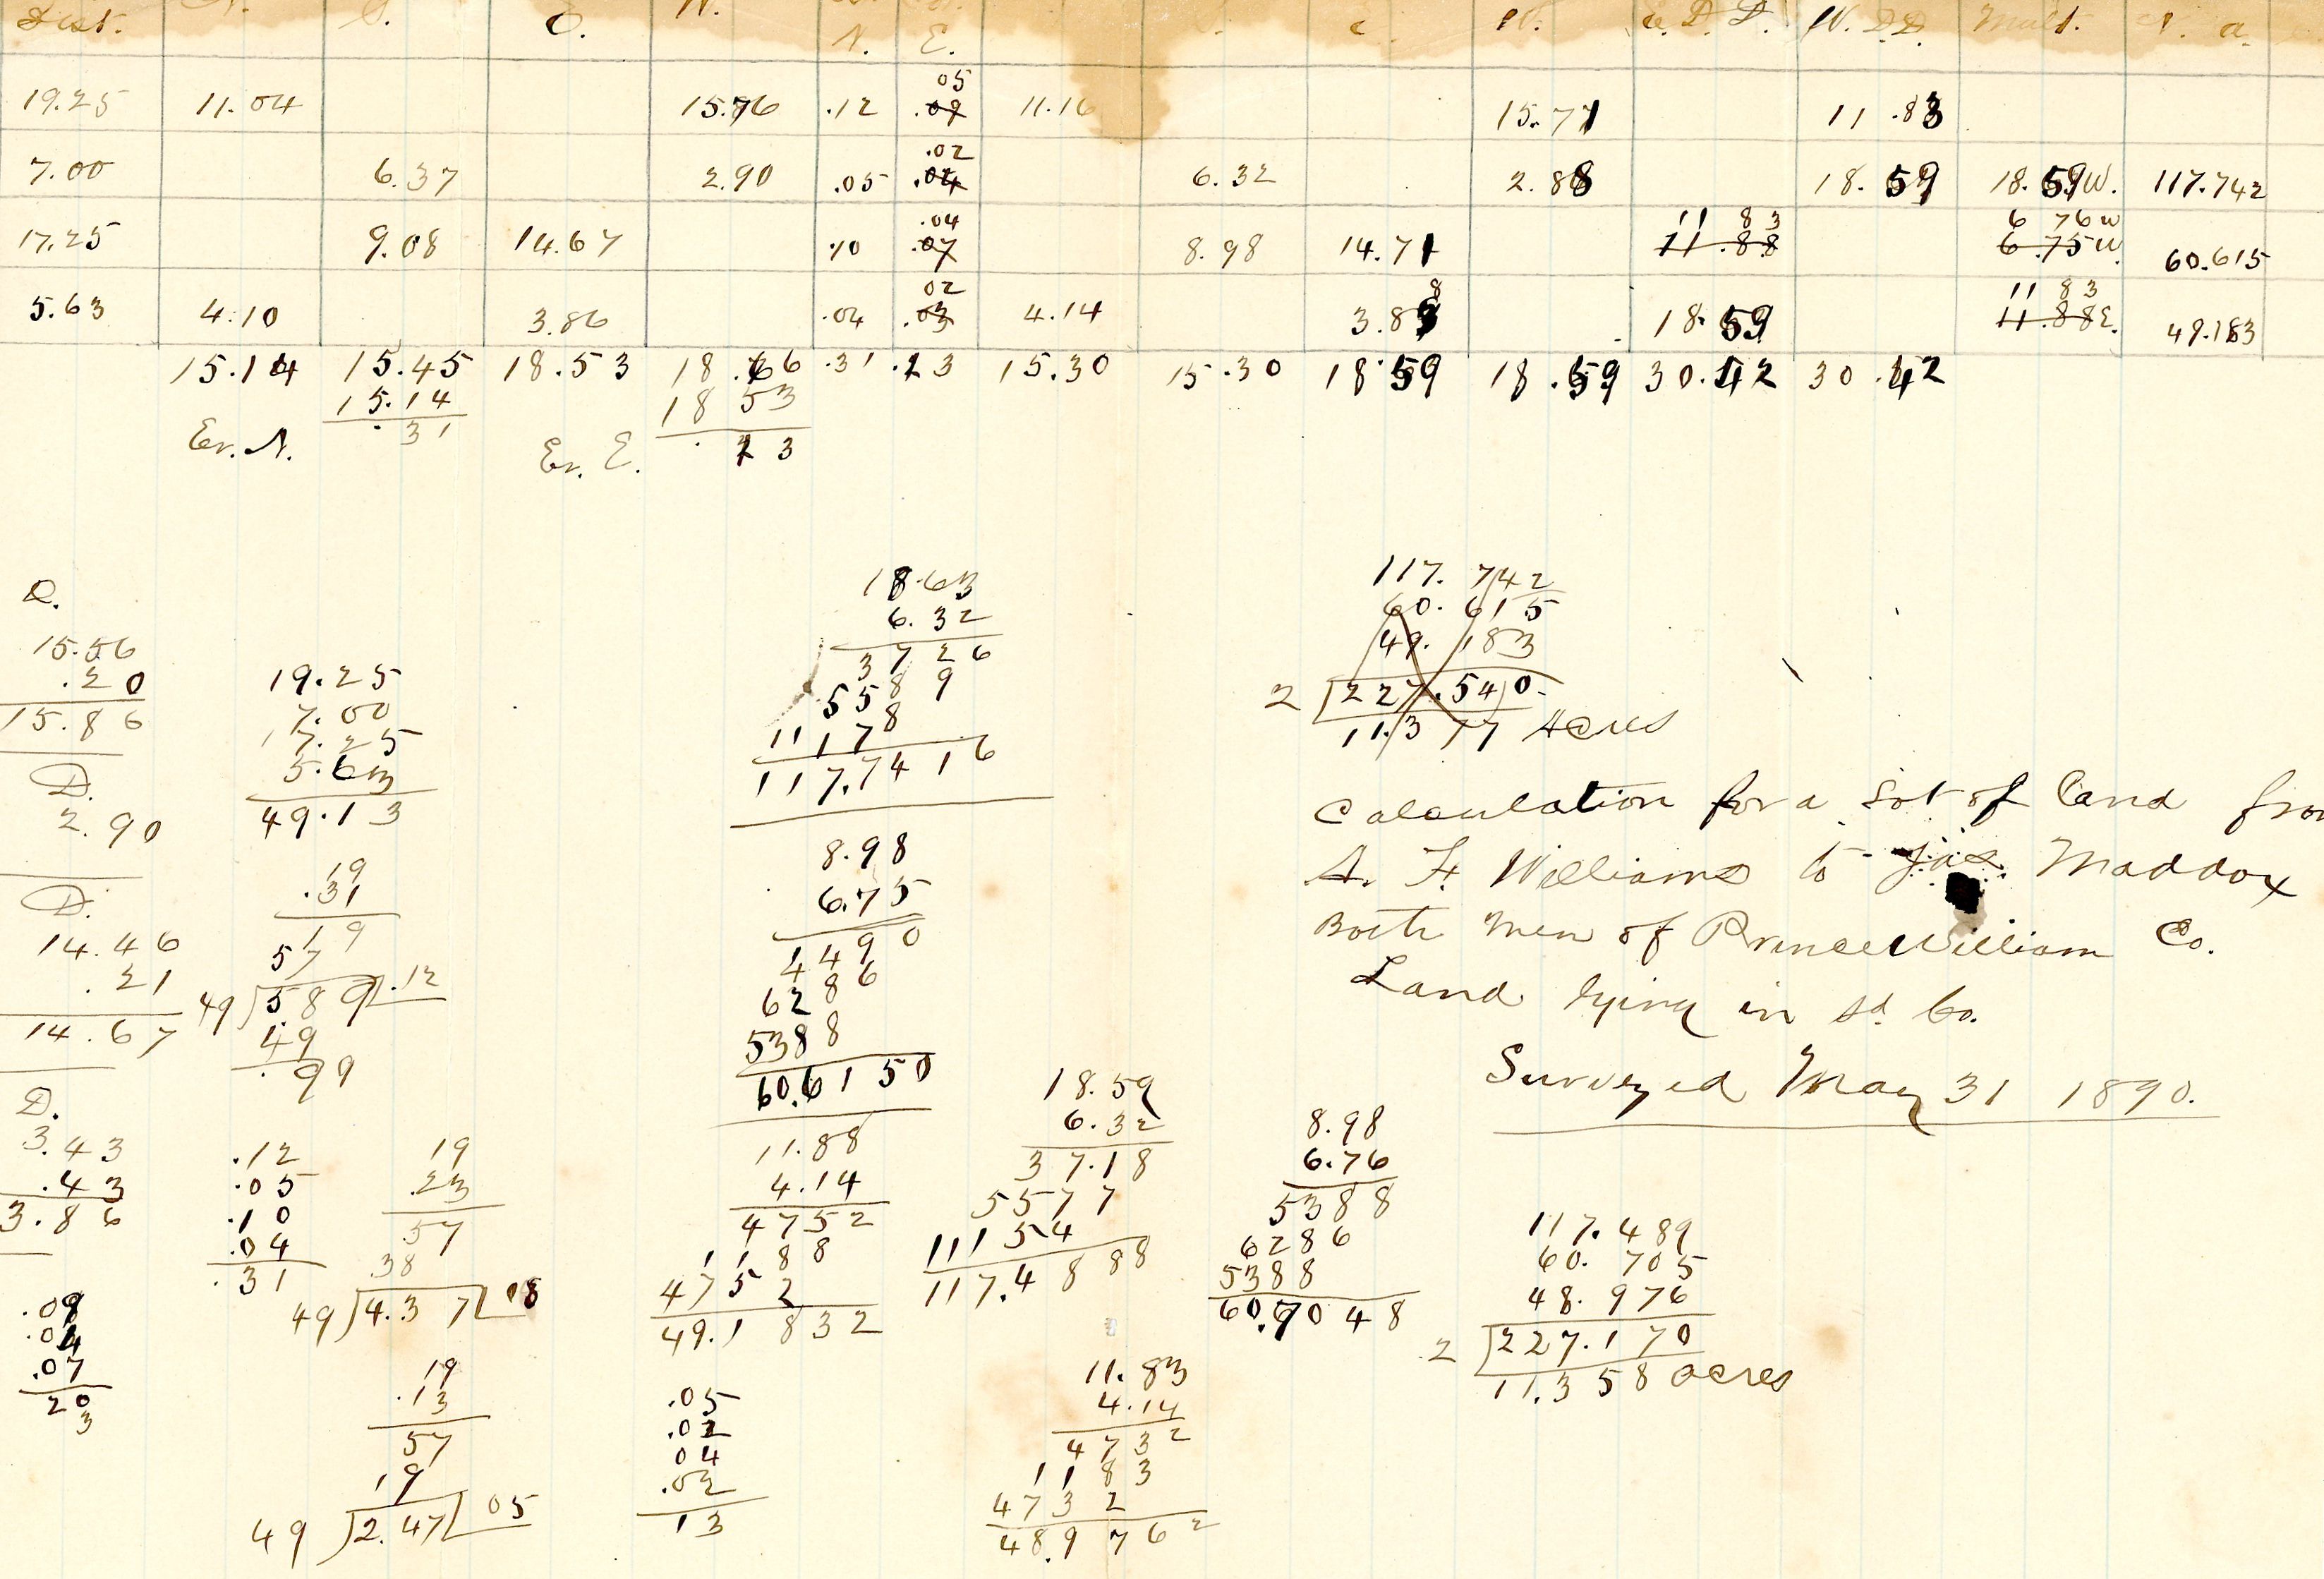 Dist. S. E. W. N. E. E. W. E. D. D. W. D.D. Mult. N. a.
.05
19.25 11.04 15.76 .12 .09 11.16 15.71 11.83
.02
7.00 6.37 2.90 .05 .04 6.32 2.88 18.59 18.59W. 117.742
.04 11 83 6 76W
17.25 9.08 14.67 .10 .07 8.98 14.71 11.88 6.75W. 60.615
02 8 11 83
5.63 4.10 3.86 .04 .03 4.14 3.89 18.59 11.88E. 49.183
15.14 15.45 18.53 18.66 .31 .13 15.30 15.30 18.59 18.59 30.42 30.42
15.14 18 53
Er. N. .31 Er. E. .13
D.
15.56
.20
15.86
D.
2.90
D.
14.46
.21
14.67
D.
3.43
.43
3.86
.09
.04
.07
20
3
19.25
7.00
17.25
5.63
49.13
19
.31
19
57
49)589(.12
49
.99
.12
.05
.10
.04
.31
19
.23
57
38
49)4.37(08
19
.13
57
19
49)2.47(05
18.63
6.32
3726
5589
11178
117.7416
8.98
6.75
4490
6286
5388
60.6150
11.88
4.14
4752
1188
4752
49.1832
.05
.02
04
.02
13
18.59
6.32
37.18
5577
11154
117.4888
11.83
4.14
4732
1183
4732
48.9762
8.98
6.76
5388
6286
5388
60.7048
117.742
60.615
49.183
2)227.540
11.377 Acres
Calculation for a Lot of Land
A. F. Williams to Jas. Maddox
Both men of Prince William Co.
Land lying in sd. Co.
Surveyed May 31 1890.
117.489
60.705
48.976
2)227.170
11.358 acres